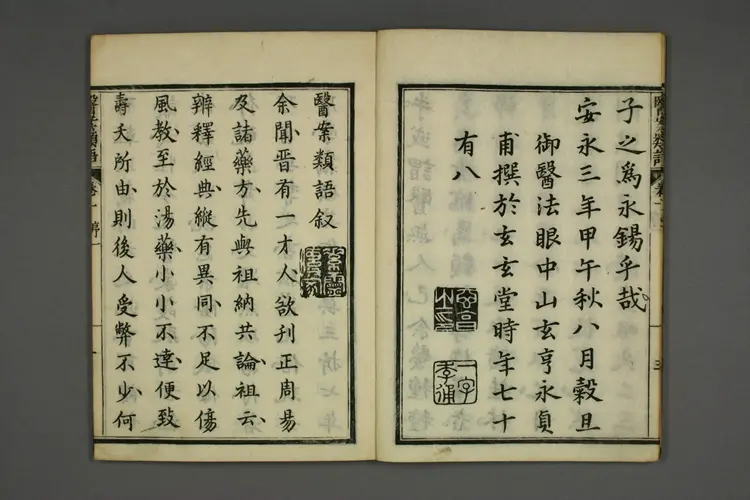 子之爲永錫乎哉
安永三年甲午秋八月穀旦
御醫法眼中山玄亨永貞
甫撰於玄玄堂時年七十
有八
一字
醫案類語叙
余聞晋有一才人欲刊正周易
及諸藥方先與祖納共論祖云
辨釋經典縱有異同不足以傷
風教至於湯藥小小不達便致
壽夭所由則後人受弊不少何